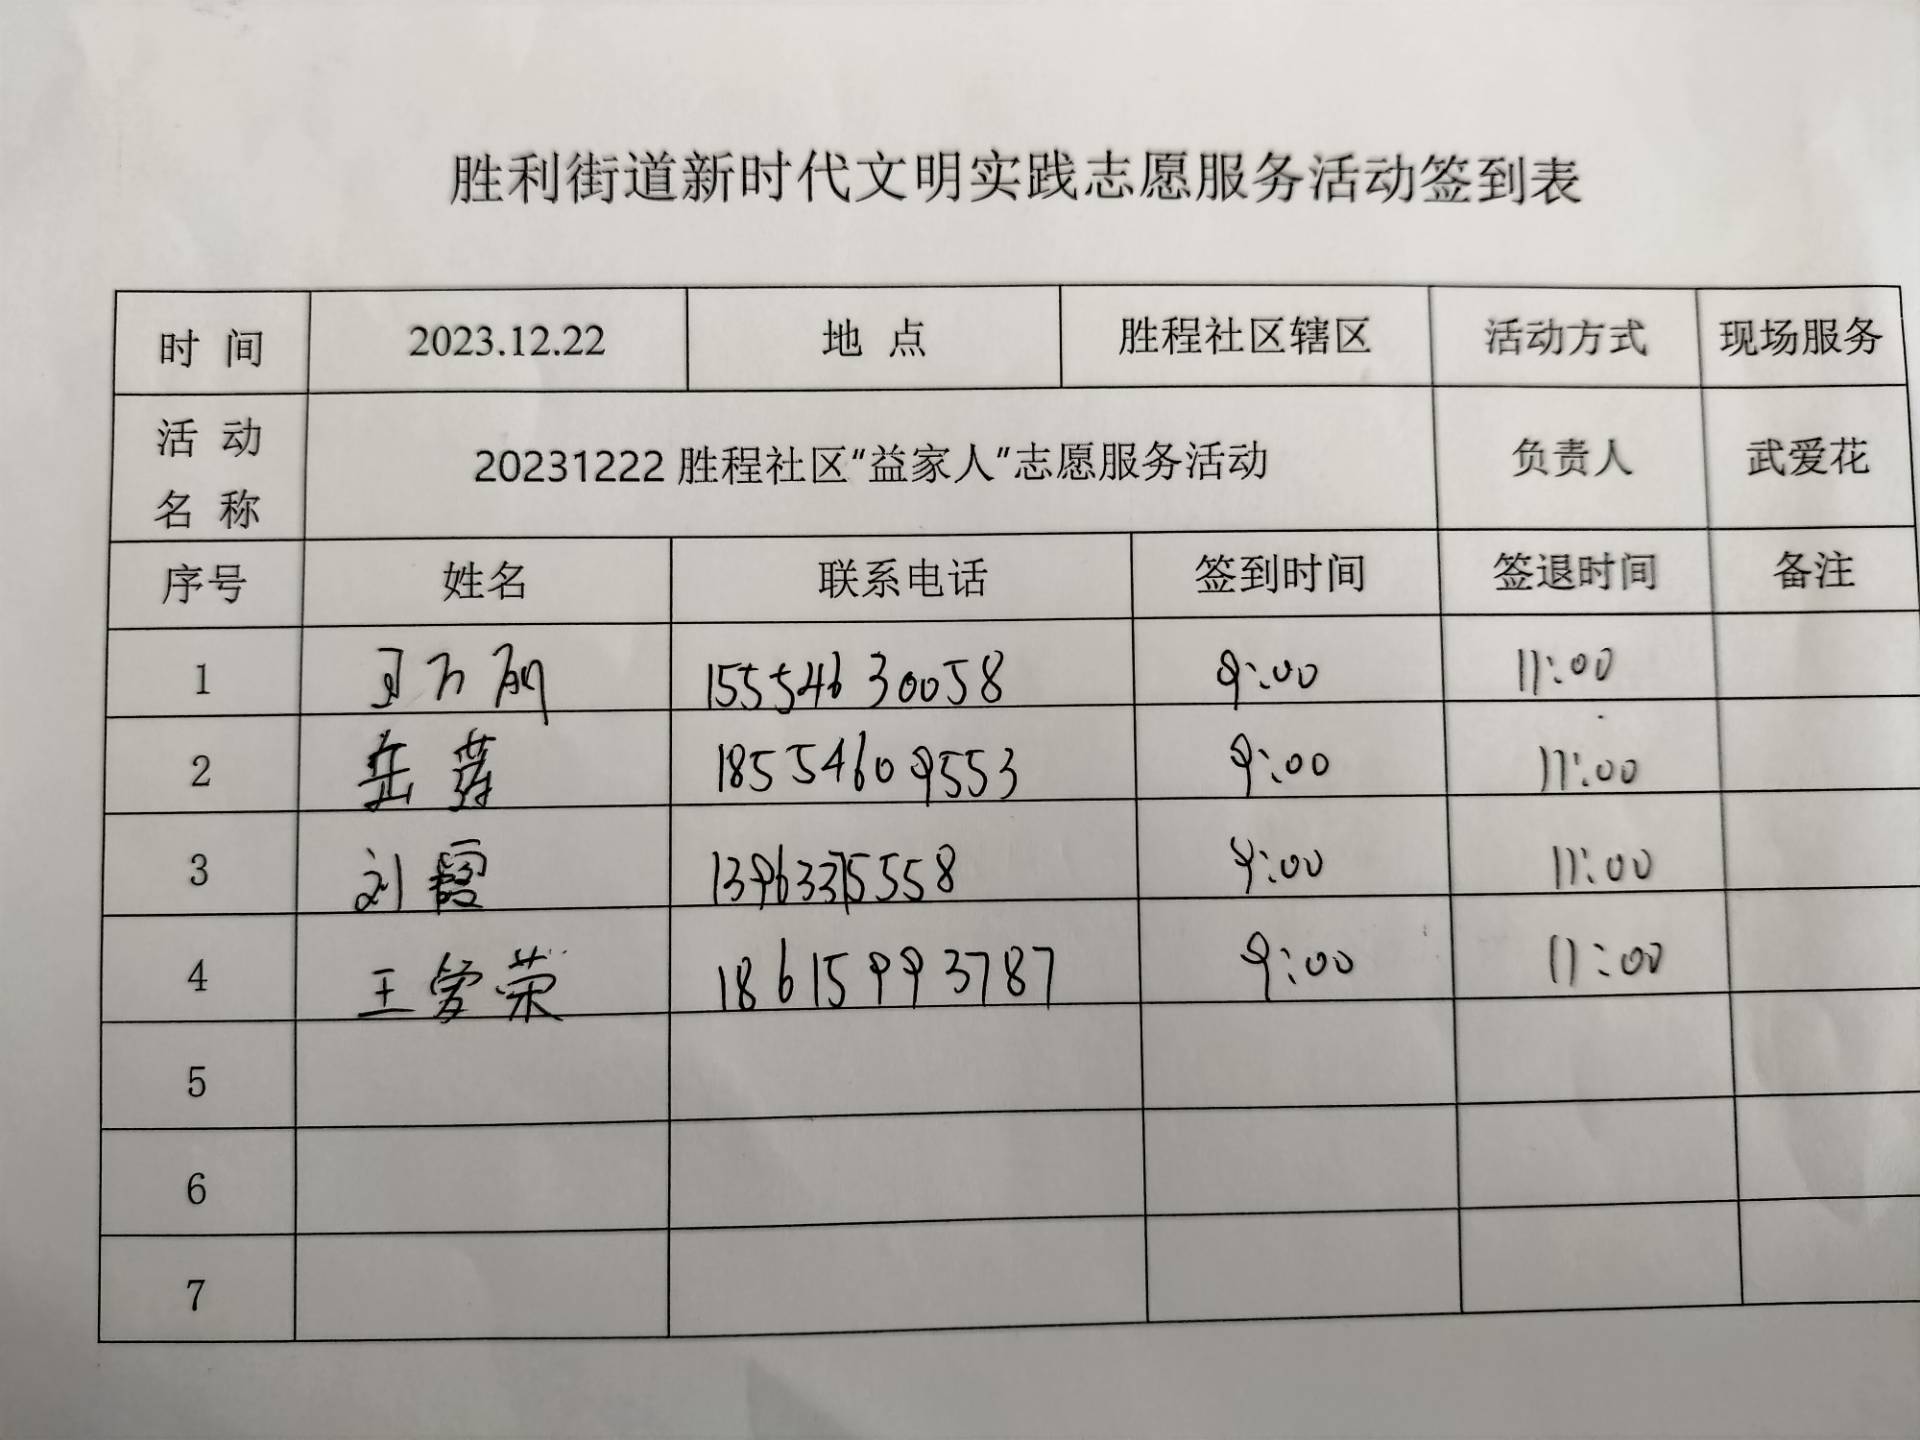 胜利街道新时代文明实践志愿服务活动签到表
时 间 2023.12.22 地 点 胜程社区辖区 活动方式 现场服务
活 动
名 称 20231222 胜程社区“益家人”志愿服务活动 负责人 武爱花
序号 姓名 联系电话 签到时间 签退时间 备注
1 15554630058 9:00 11:00
2 岳 18554609553 9:00 11:00
3 刘霞 13963315558 9:00 11:00
4 王爱荣 18615993787 9:00 11:00
5
6
7